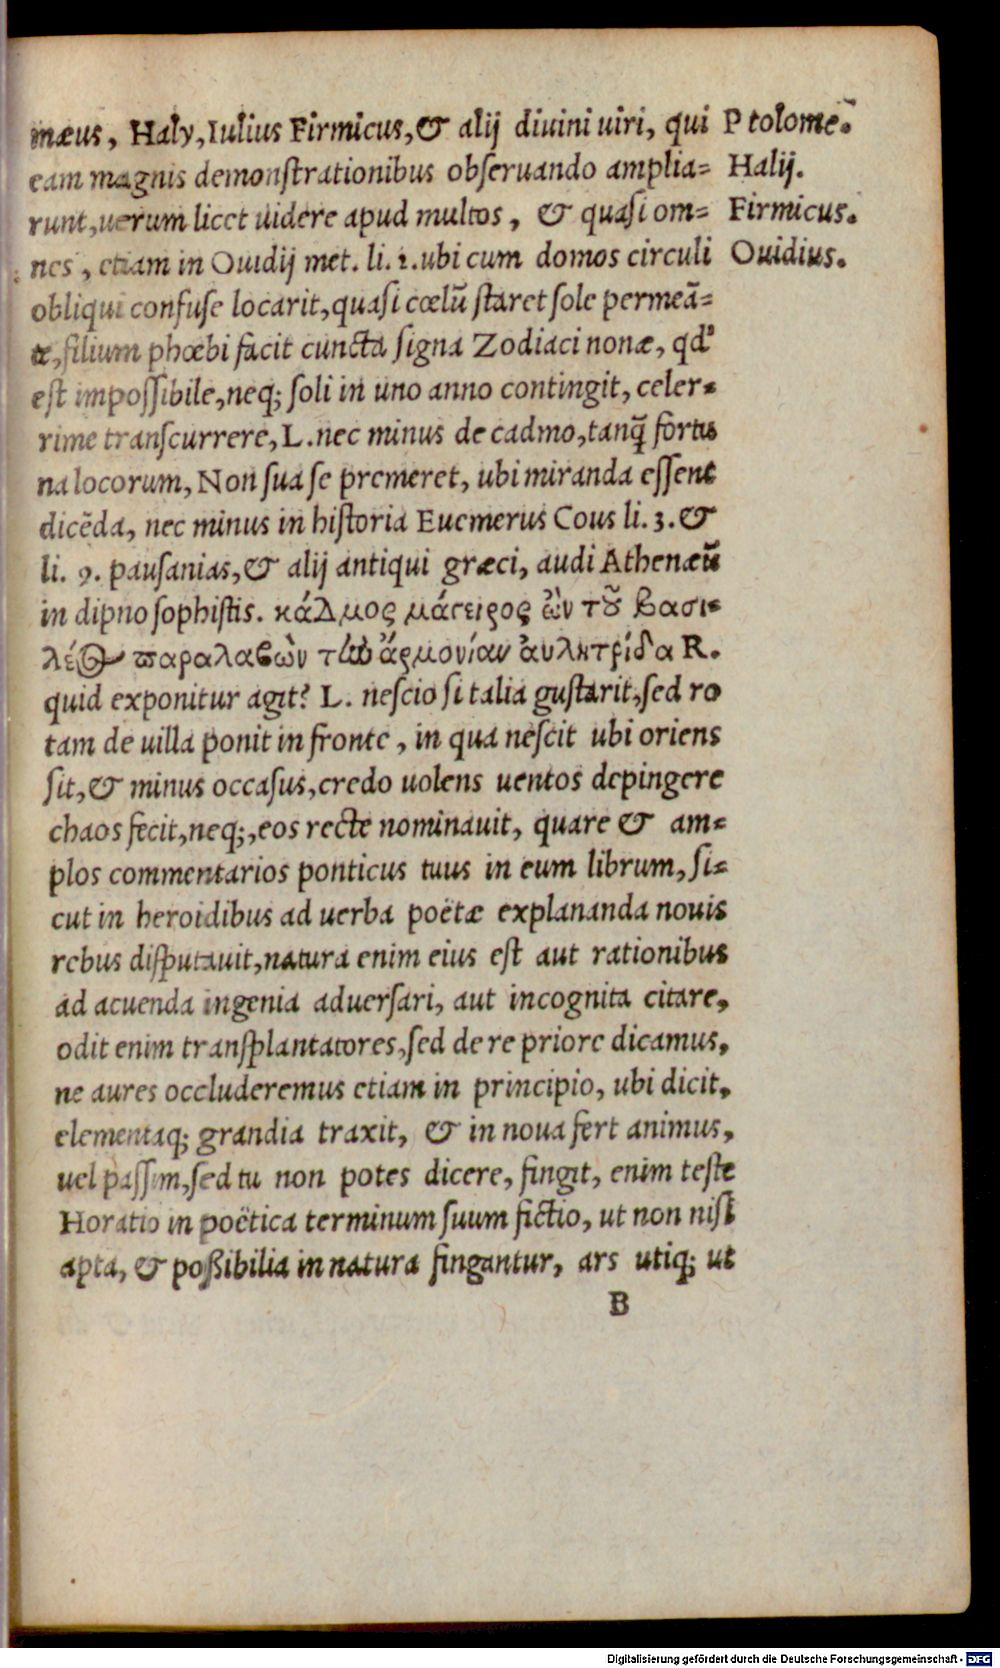 mæus, Haly, Iulius Firmicus, & alij diuini uiri, qui Ptolomẽ.
eam magnis demonstrationibus obseruando amplia= Halij.
runt, uerum licet uidere apud multos, & quasi om= Firmicus.
nes, etiam in Ouidij met. li. 2. ubi cum domos circuli Ouidius.
obliqui confuse locarit, quasi cœlũ staret sole permeã=
te, filium phœbi facit cuncta signa Zodiaci nonæ, qd'
est impossibile, neq; soli in uno anno contingit, celer=
rime transcurrere, L. nec minus de cadmo, tanq̃ fortu
na locorum, Non sua se premeret, ubi miranda essent
dicẽda, nec minus in historia Euemerus Cous li. 3. &
li. 9. pausanias, & alij antiqui græci, audi Athenæũ
in dipnosophistis. κάδμος μάγειρος ὢν τοῦ βασι=
λέως παραλαβὼν τὴν ἁρμονίαν ἀυλητρίδα R.
quid exponitur agit? L. nescio si talia gustarit, sed ro
tam de uilla ponit in fronte, in qua nescit ubi oriens
sit, & minus occasus, credo uolens uentos depingere
chaos fecit, neq;, eos recte nominauit, quare & am=
plos commentarios ponticus tuus in eum librum, si=
cut in heroidibus ad uerba poëtæ explananda nouis
rebus disputauit, natura enim eius est aut rationibus
ad acuenda ingenia aduersari, aut incognita citare,
odit enim transplantatores, sed de re priore dicamus,
ne aures occluderemus etiam in principio, ubi dicit,
elementaq; grandia traxit, & in noua fert animus,
uel passim, sed tu non potes dicere, fingit, enim teste
Horatio in poëtica terminum suum fictio, ut non nisi
apta, & poßibilia in natura fingantur, ars utiq; ut
B
Digitalisierung gefördert durch die Deutsche Forschungsgemeinschaft - DFG